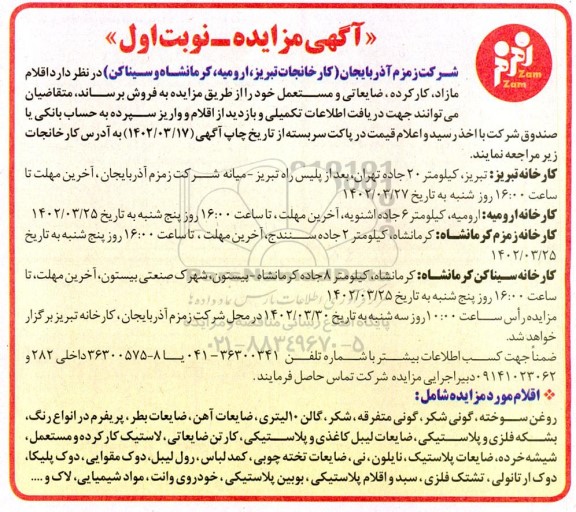 «آگهی مزایده ــ نوبت اول»
زمزم
Zam
Zam
شرکت زمزم آذربایجان (کارخانجات تبریز، ارومیه، کرمانشاه و سیناکن) در نظر دارد اقلام
مازاد، کارکرده، ضایعاتی و مستعمل خود را از طریق مزایده به فروش برساند، متقاضیان
می‌توانند جهت دریافت اطلاعات تکمیلی و بازدید از اقلام و واریز سپرده به حساب بانکی یا
صندوق شرکت با اخذ رسید و اعلام قیمت در پاکت سربسته از تاریخ چاپ آگهی (۱۴۰۲/۰۳/۱۷) به آدرس کارخانجات
زیر مراجعه نمایند.
کارخانه تبریز: تبریز، کیلومتر ۲۰ جاده تهران، بعد از پلیس راه تبریز - میانه شرکت زمزم آذربایجان، آخرین مهلت تا
ساعت ۱۶:۰۰ روز شنبه به تاریخ ۱۴۰۲/۰۳/۲۷
کارخانه ارومیه: ارومیه، کیلومتر ۶ جاده اشنویه، آخرین مهلت، تا ساعت ۱۶:۰۰ روز پنج شنبه به تاریخ ۱۴۰۲/۰۳/۲۵
کارخانه زمزم کرمانشاه: کرمانشاه، کیلومتر ۲ جاده سنندج، آخرین مهلت، تا ساعت ۱۶:۰۰ روز پنج شنبه به تاریخ
۱۴۰۲/۰۳/۲۵
کارخانه سیناکن کرمانشاه: کرمانشاه، کیلومتر ۸ جاده کرمانشاه - بیستون، شهرک صنعتی بیستون، آخرین مهلت، تا
ساعت ۱۶:۰۰ روز پنج شنبه به تاریخ ۱۴۰۲/۰۳/۲۵
مزایده رأس ساعت ۱۰:۰۰ روز سه شنبه به تاریخ ۱۴۰۲/۰۳/۳۰ در محل شرکت زمزم آذربایجان، کارخانه تبریز برگزار
خواهد شد.
پایگاه اطلاع رسانی مناقصه و مزایده
۰۲۱-۸۸۳۴۹۶۷۰-۵
ضمناً جهت کسب اطلاعات بیشتر با شماره تلفن ۳۶۳۰۰۳۴۱-۰۴۱ یا ۸-۳۶۳۰۰۵۷۵ داخلی ۲۸۲ و
۰۹۱۴۱۰۲۳۰۶۲ دبیر اجرایی مزایده شرکت تماس حاصل فرمایند.
❖ اقلام مورد مزایده شامل:
روغن سوخته، گونی شکر، گونی متفرقه، شکر، گالن ۱۰ لیتری، ضایعات آهن، ضایعات بطر، پریفرم در انواع رنگ،
بشکه فلزی و پلاستیکی، ضایعات لیبل کاغذی و پلاستیکی، کارتن ضایعاتی، لاستیک کارکرده و مستعمل،
شیشه خرده، ضایعات پلاستیک، نایلون، نی، ضایعات تخته چوبی، کمد لباس، رول لیبل، دوک مقوایی، دوک پلیکا،
دوک ارتانولی، تشتک فلزی، سبد و اقلام پلاستیکی، بوبین پلاستیکی، خودروی وانت، مواد شیمیایی، لاک و ....